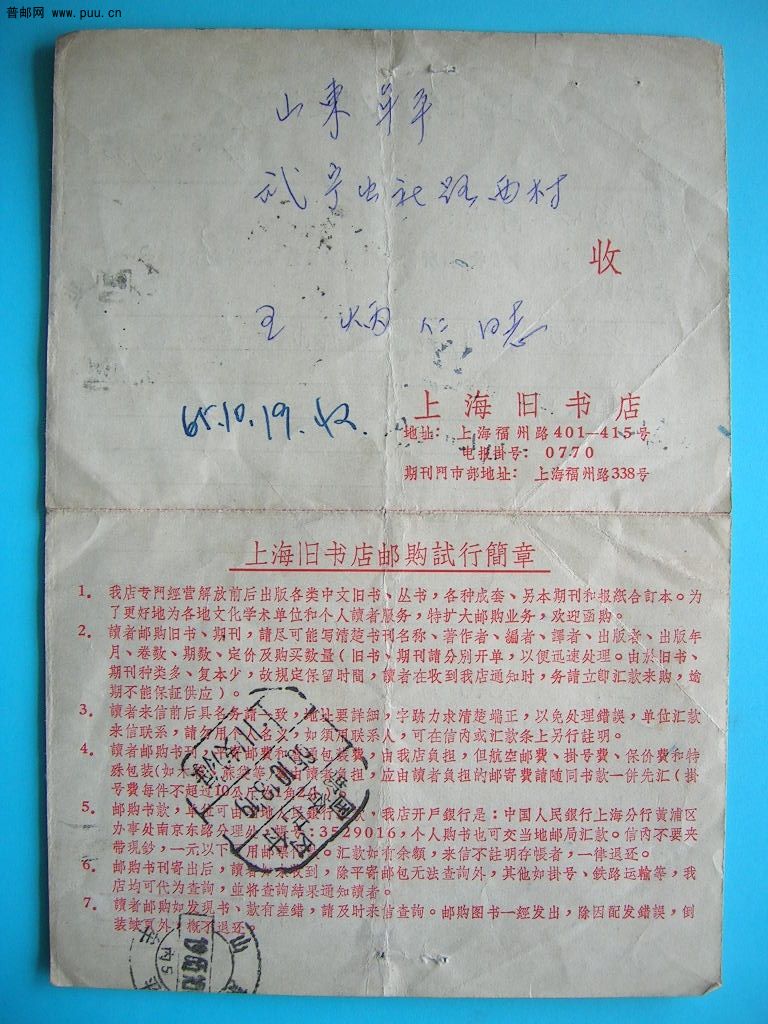 普邮网 www.puu.cn
山東牟平
武宁公社路西村
收
王炳仁同志
65.10.19.收.
上海旧书店
地址：上海福州路401—415号
电报掛号：0770
期刊門市部地址：上海福州路338号
上海旧书店邮购試行簡章
1. 我店专門經营解放前后出版各类中文旧书、丛书，各种成套、另本期刊和报紙合訂本。为
了更好地为各地文化学术单位和个人讀者服务，特扩大邮购业务，欢迎函购。
2. 讀者邮购旧书、期刊，請尽可能写清楚书刊名称、著作者、編者、譯者、出版者、出版年
月、卷数、期数、定价及购买数量（旧书、期刊請分别开单，以便迅速处理。由於旧书、
期刊种类多、复本少，故規定保留时間，讀者在收到我店通知时，务請立即汇款来购，逾
期不能保証供应）。
3. 讀者来信前后具名务請一致，地址要詳細，字跡力求清楚端正，以免处理錯誤，单位汇款
来信联系，請勿用个人名义，如須用联系人，可在信內或汇款条上另行註明。
4. 讀者邮购书刊，平寄邮費和普通包装費，由我店負担，但航空邮費、掛号費、保价費和特
殊包装（如木箱、蔴袋等）由讀者負担，应由讀者負担的邮寄費請随同书款一併先汇（掛
号費每件不超过10公斤 1角2分）。
5. 邮购书款，单位可由当地人民銀行汇款，我店开戶銀行是：中国人民銀行上海分行黄浦区
办事处南京东路分理处，帳号：3529016，个人购书也可交当地邮局汇款。信內不要夹
带現鈔，一元以下可用邮票代。汇款如有余額，来信不註明存帳者，一律退还。
6. 邮购书刊寄出后，讀者如未收到，除平寄邮包无法查詢外，其他如掛号、鉄路运輸等，我
店均可代为查詢，並将查詢結果通知讀者。
7. 讀者邮购如发現书、款有差錯，請及时来信查詢。邮购图书一經发出，除因配发錯誤，倒
装缺頁外，概不退还。
上海
国内
邮資已付
山東
內5